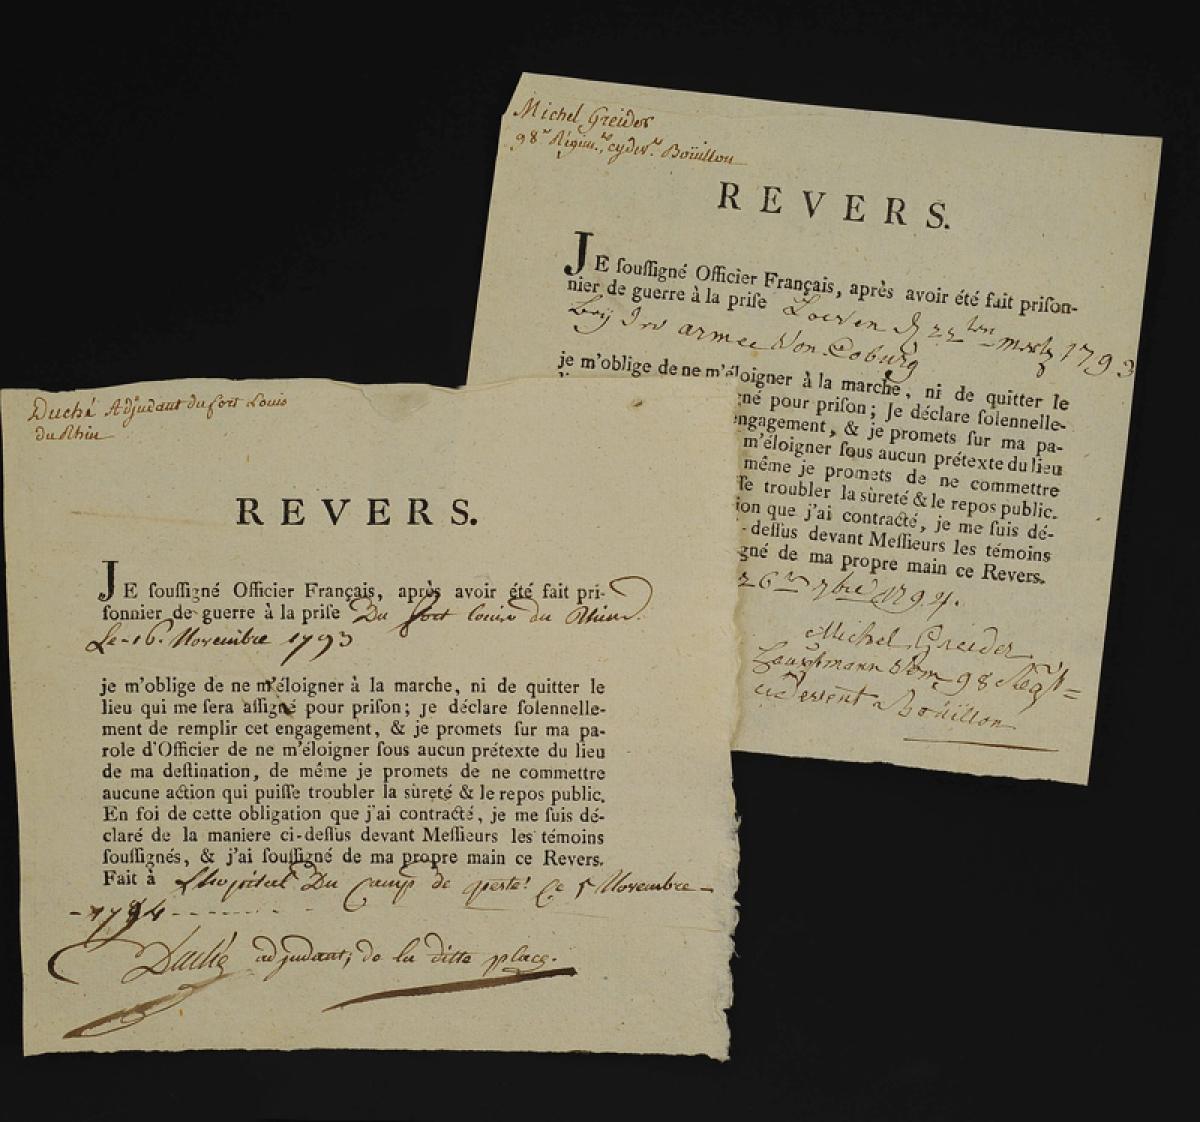 Michel Greider
98.e Régim.t, cydev.t Boüillon
REVERS.
JE ſouſſigné Officier Français, après avoir été fait priſon-
nier de guerre à la priſe Loeven 22ten 1793
armee Von Coburg
je m'oblige de ne m'éloigner à la marche, ni de quitter le
gné pour priſon; Je déclare ſolennelle-
engagement, & je promets ſur ma pa-
m'éloigner ſous aucun prétexte du lieu
même je promets de ne commettre
ſſe troubler la sùreté & le repos public.
ion que j'ai contracté, je me ſuis dé-
-deſſus devant Meſſieurs les témoins
gné de ma propre main ce Revers.
26 7bre 1794.
Michel Greider
98 Regt=
Boüillon
Duché Adjudant du fort Louis
du Rhin
REVERS.
JE ſouſſigné Officier Français, après avoir été fait pri-
ſonnier de guerre à la priſe Du fort Louis du Rhin.
Le 16. Novembre 1793
je m'oblige de ne m'éloigner à la marche, ni de quitter le
lieu qui me ſera aſſigné pour priſon; je déclare ſolennelle-
ment de remplir cet engagement, & je promets ſur ma pa-
role d'Officier de ne m'éloigner ſous aucun prétexte du lieu
de ma deſtination, de même je promets de ne commettre
aucune action qui puiſſe troubler la sùreté & le repos public.
En foi de cette obligation que j'ai contracté, je me ſuis dé-
claré de la maniere ci-deſſus devant Meſſieurs les témoins
ſouſſignés, & j'ai ſouſſigné de ma propre main ce Revers.
Fait à Lhopital Du Camp de Ce 5 Novembre -
- 1794 - - - - - -
Duché adjudant, de la ditte place.